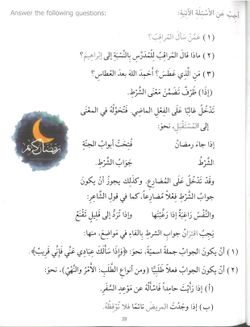 Answer the following questions:
أَجِبْ عَنِ الْأَسْئِلَةِ الْآتِيَةِ:
(١) عَمَّنْ سَأَلَ الْمُرَاقِبُ؟
(٢) مَاذَا قَالَ الْمُرَاقِبُ لِلْمُدَرِّسِ بِالنِّسْبَةِ إِلَى إِبْرَاهِيمَ؟
(٣) مَنِ الَّذِي عَطَسَ؟ أَحَمِدَ اللهَ بَعْدَ الْعُطَاسِ؟
(إِذَا) ظَرْفٌ تَضَمَّنَ مَعْنَى الشَّرْطِ.
تَدْخُلُ غَالِبًا عَلَى الْفِعْلِ الْمَاضِي. فَتُحَوِّلُهُ فِي الْمَعْنَى
إِلَى الْمُسْتَقْبَلِ، نَحْوَ:
إِذَا جَاءَ رَمَضَانُ فُتِحَتْ أَبْوَابُ الْجَنَّةِ
الشَّرْطُ جَوَابُ الشَّرْطِ
رمضان كريم
وَقَدْ تَدْخُلُ عَلَى الْمُضَارِعِ. وَكَذَلِكَ يَجُوزُ أَنْ يَكُونَ
جَوَابُ الشَّرْطِ فِعْلًا مُضَارِعًا، كَمَا فِي قَوْلِ الشَّاعِرِ:
وَالنَّفْسُ رَاغِبَةٌ إِذَا رَغَّبْتَهَا وَإِذَا تُرَدُّ إِلَى قَلِيلٍ تَقْنَعُ
يَجِبُ اقْتِرَانُ جَوَابِ الشَّرْطِ بِالْفَاءِ فِي مَوَاضِعَ، مِنْهَا:
(١) أَنْ يَكُونَ الْجَوَابُ جُمْلَةً اسْمِيَّةً، نَحْوَ: ﴿وَإِذَا سَأَلَكَ عِبَادِي عَنِّي فَإِنِّي قَرِيبٌ﴾.
(٢) أَنْ يَكُونَ الْجَوَابُ فِعْلًا طَلَبِيًّا (وَمِنْ أَنْوَاعِ الطَّلَبِ: الْأَمْرُ وَالنَّهْيُ)، نَحْوَ:
(أ) إِذَا رَأَيْتَ حَامِدًا فَاسْأَلْهُ عَنْ مَوْعِدِ السَّفَرِ.
(ب) إِذَا وَجَدْتَ الْمَرِيضَ نَائِمًا فَلَا تُوقِظْهُ.